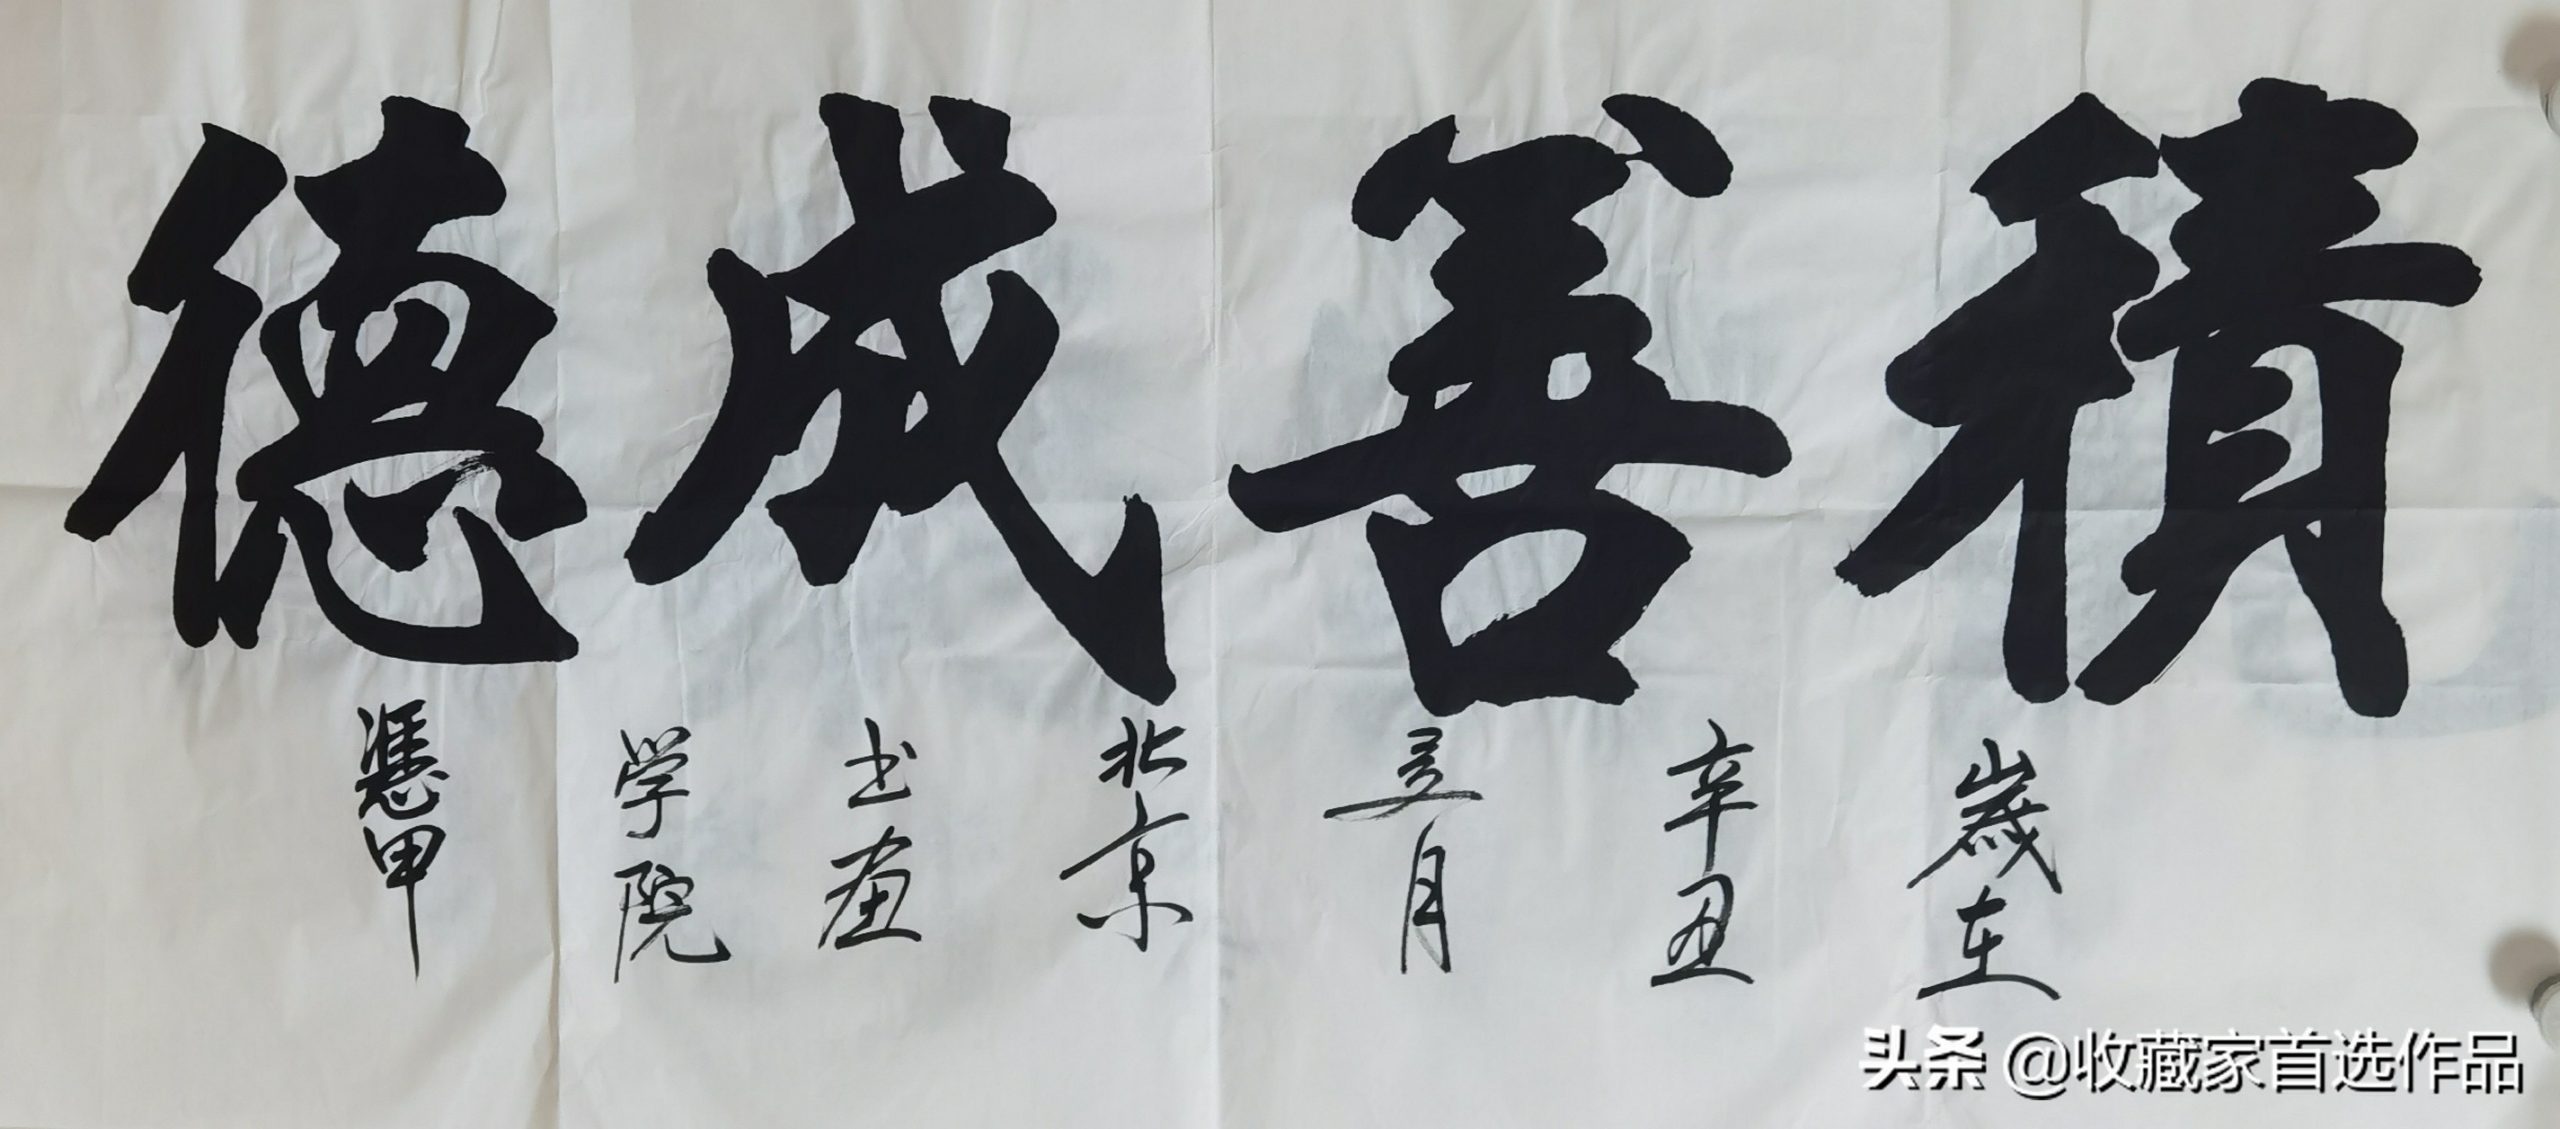 積善成德
歲在
辛丑
夏月
北京
书画
学院
馮甲
头条 @收藏家首选作品